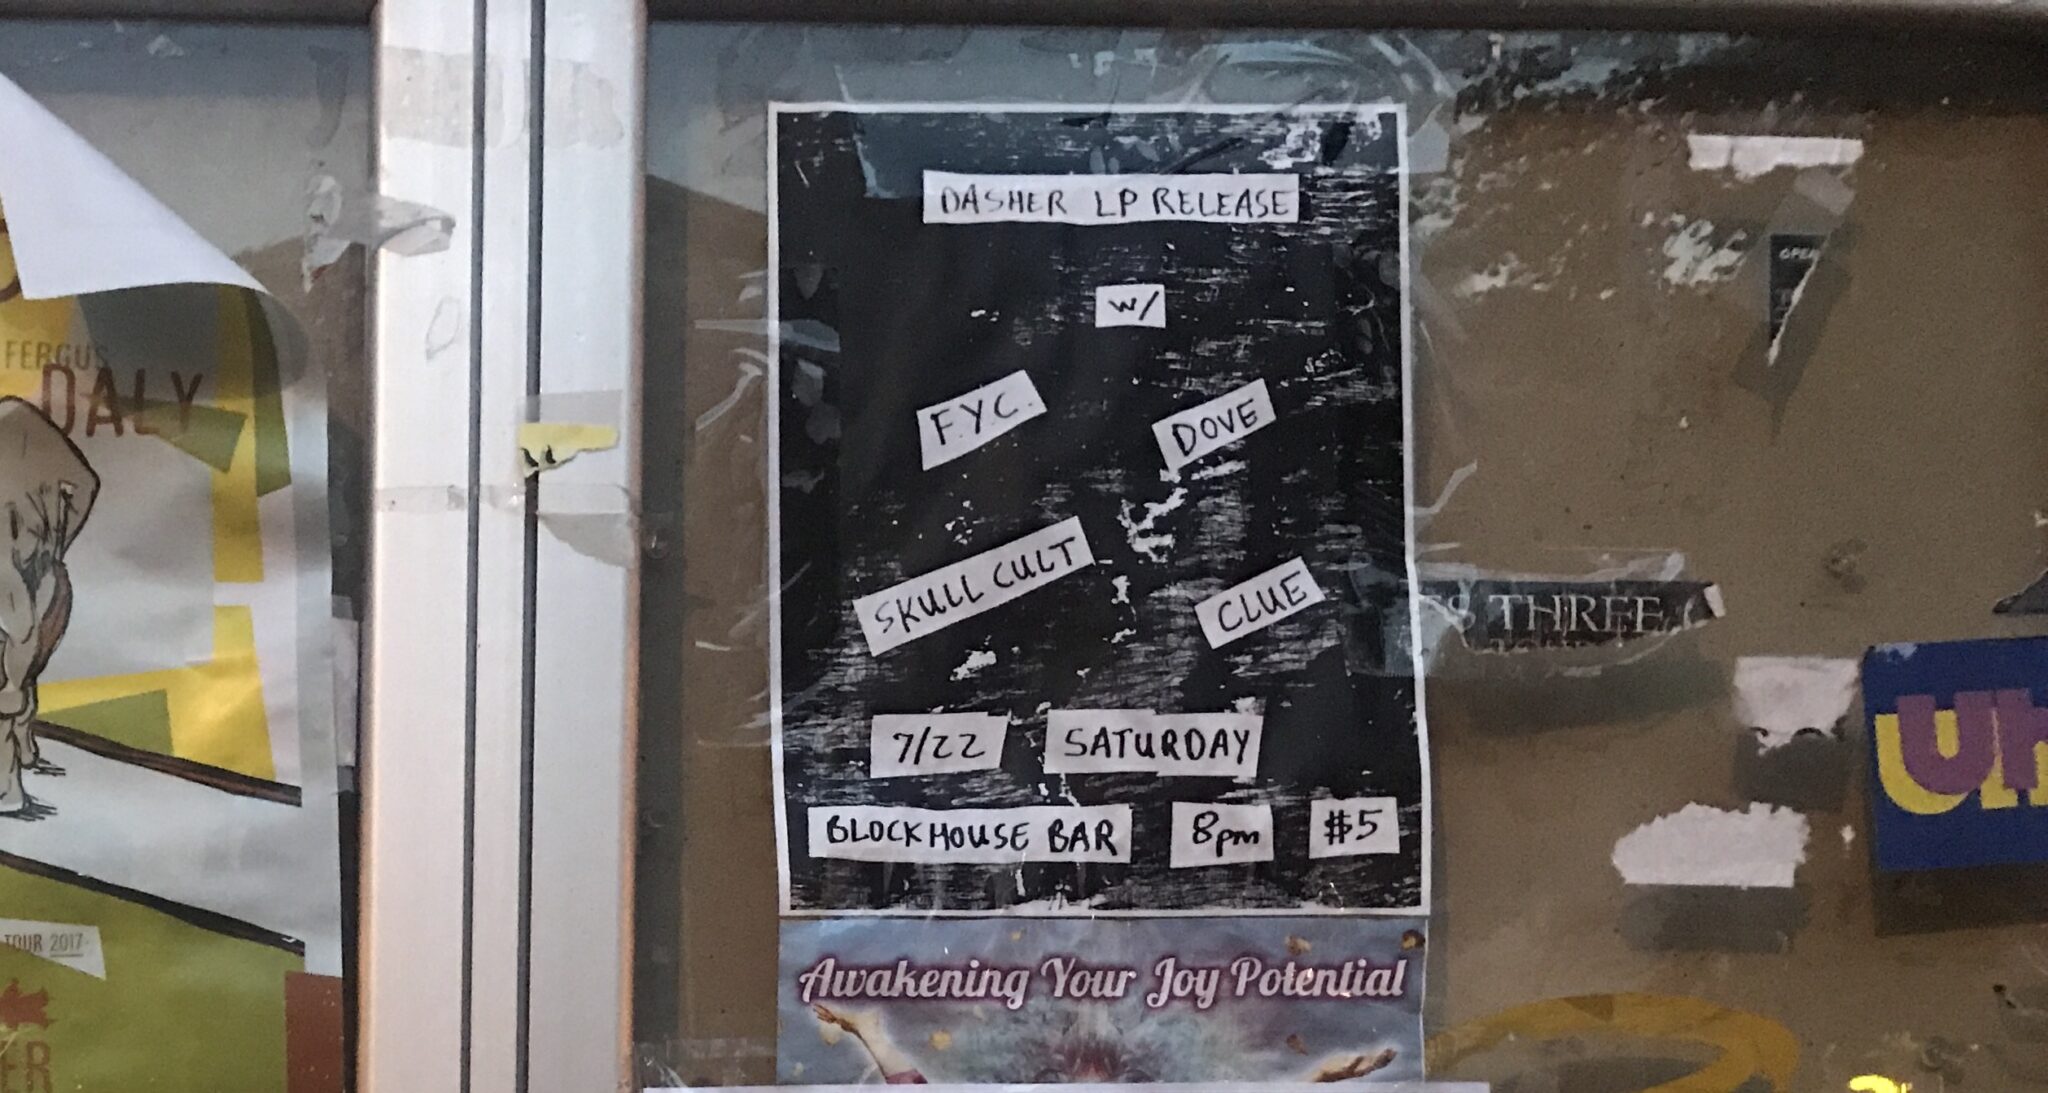 FERGUS
DALY
TOUR 2017
DASHER LP RELEASE
W/
F.Y.C.
DOVE
SKULL CULT
CLUE
7/22 SATURDAY
BLOCKHOUSE BAR 8pm $5
Awakening Your Joy Potential
THREE